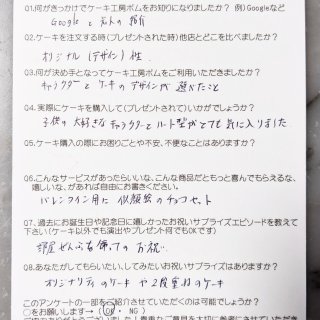 01.何がきっかけでケーキ工房ボムをお知りになりましたか？ 例)Googleなど
Google と 友人の 紹介
02.ケーキを注文する時(プレゼントされた時)他店とどこを比べましたか？
オリジナル (デザイン) 性
03.何が決め手となってケーキ工房ボムをご利用いただきましたか？
キャラクターと ケーキの デザインが 選べたこと
04.実際にケーキを購入して(プレゼントされて)いかがでしょうか？
子供の 大好きな キャラクターと ハート型が とても 気に入りました
05.ケーキ購入の際にお困りごとや不安、不便なことはありますか？
06.こんなサービスがあったらいいな、こんな商品だともっと喜んでもらえるな、
嬉しいな、があれば自由にお書きください。
バレンタイン用に 似顔絵の チョコセット
07.過去にお誕生日や記念日に嬉しかったお祝いサプライズエピソードを教えて
下さい(ケーキ以外でも演出やプレゼント何でもOKです)
部屋ぜんぶを 飾っての お祝い
08.あなたがしてもらいたい、してみたいお祝いサプライズはありますか？
オリジナリティのケーキ や 2段重ねのケーキ
このアンケートの一部をご紹介させていただくのは可能でしょうか？
○をお願いします→ ( OK ・ NG )